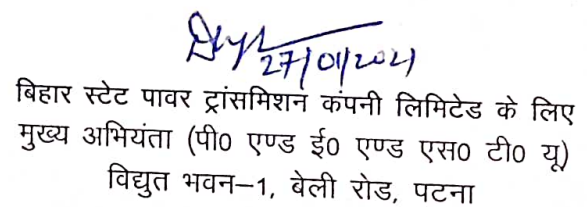 27/01/2021
बिहार स्टेट पावर ट्रांसमिशन कंपनी लिमिटेड के लिए
मुख्य अभियंता (पी0 एण्ड ई0 एण्ड एस0 टी0 यू)
विद्युत भवन-1, बेली रोड, पटना